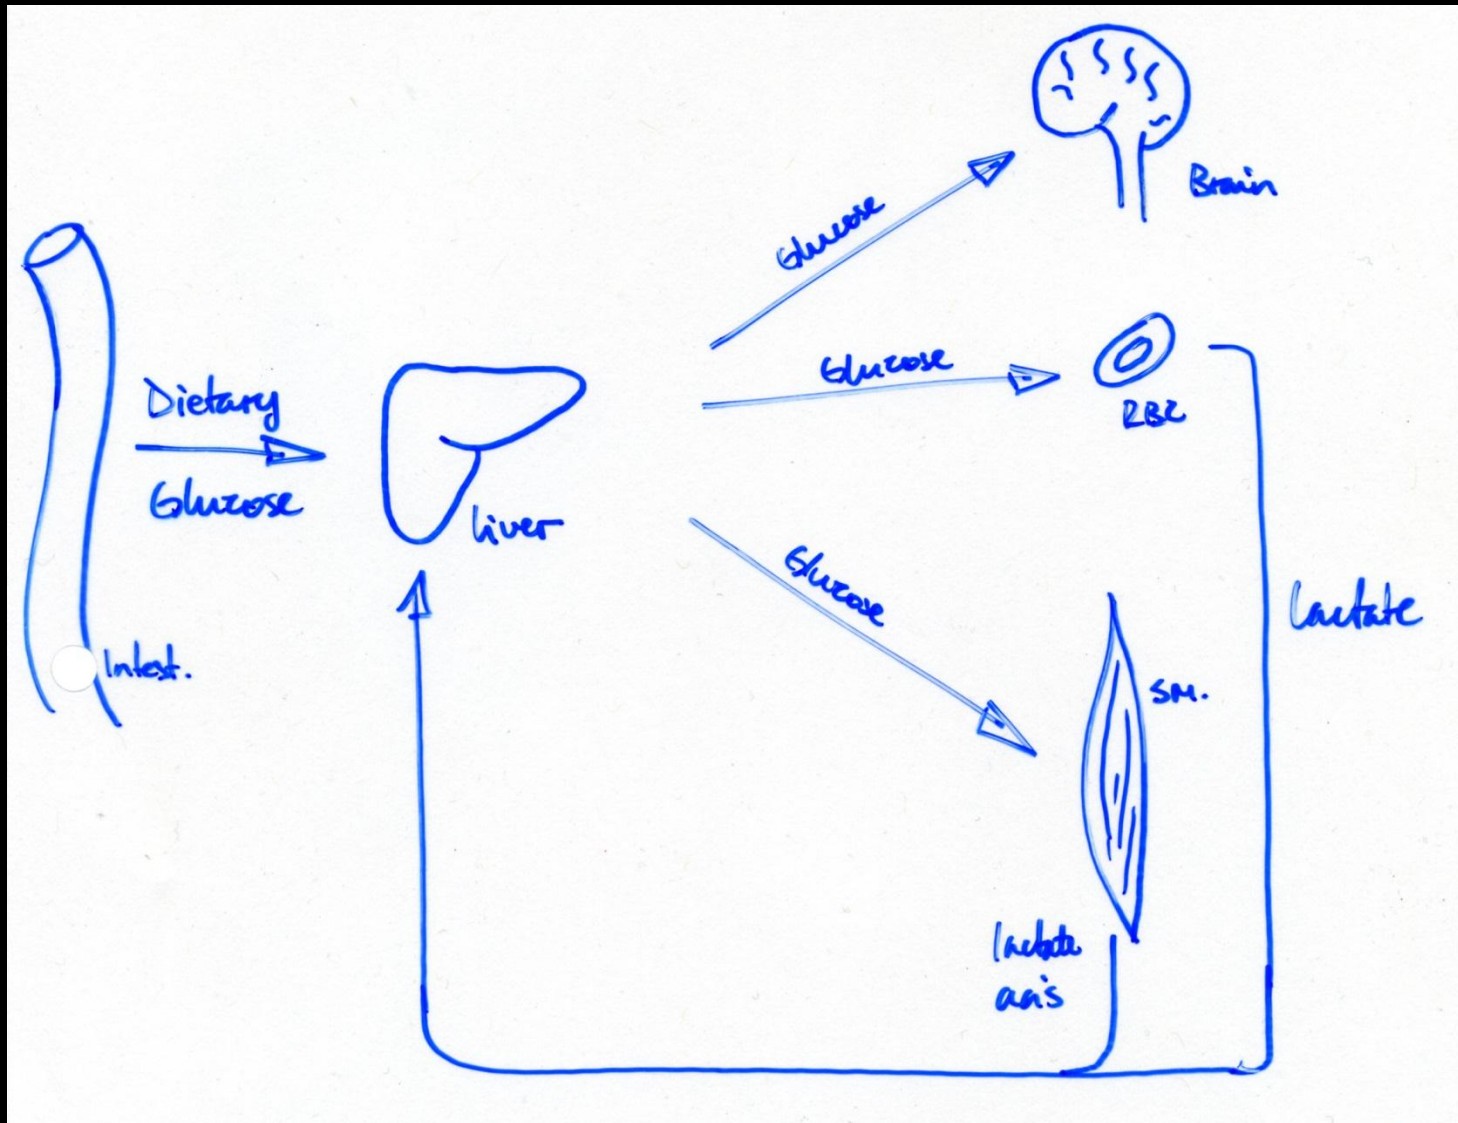 Brain
Glucose
Glucose
RBC
Dietary
Glucose
liver
Glucose
Lactate
Intest.
SM.
lactate
aa's